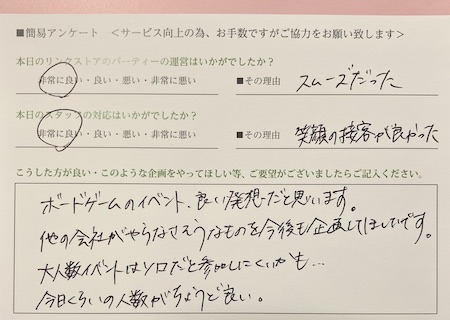 ■簡易アンケート　＜サービス向上の為、お手数ですがご協力をお願い致します＞
本日のリンクストアのパーティーの運営はいかがでしたか？
非常に良い・良い・悪い・非常に悪い　■その理由　スムーズだった
本日のスタッフの対応はいかがでしたか？
非常に良い・良い・悪い・非常に悪い　■その理由　笑顔の接客が良かった
こうした方が良い・このような企画をやってほしい等、ご要望がございましたらご記入ください。
ボードゲームのイベント、良い発想だと思います。
他の会社がやらなさそうなものを今後も企画してほしいです。
大人数イベントはソロだと参加しにくいかも…
今日くらいの人数がちょうど良い。